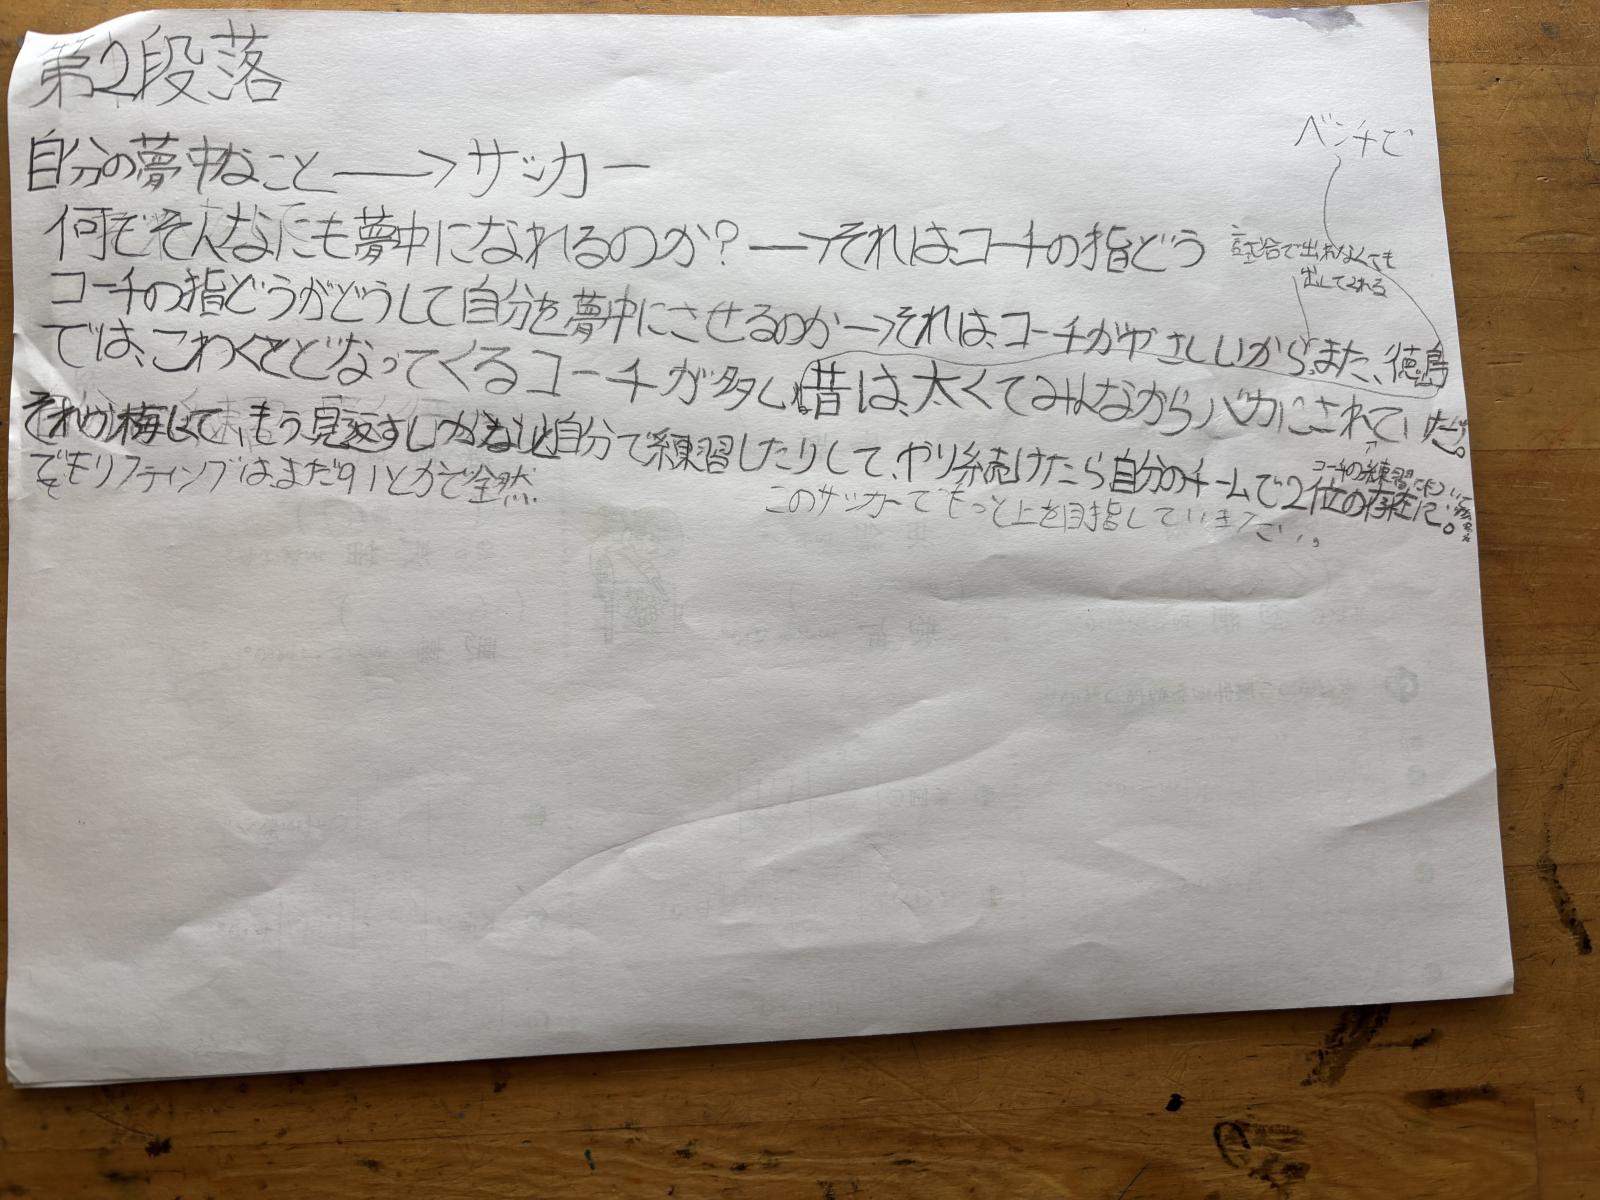 第2段落
自分の夢中なこと→サッカー
ベンチで
何でそんなにも夢中になれるのか?→それはコーチの指どう
試合で出れなくても
出してくれる
コーチの指どうがどうして自分を夢中にさせるのか→それは、コーチがやさしいから、また、徳島
では、こわくてどなってくるコーチが多い。昔は、太くてみんなからバカにされていた。
それが悔しくて、もう見返すしかないと自分で練習したりして、やり続けたら自分のチームで2位の存在に。
コーチの練習
でもリフティングはまだ91とかで全然
このサッカーでもっと上を目指していきたい。